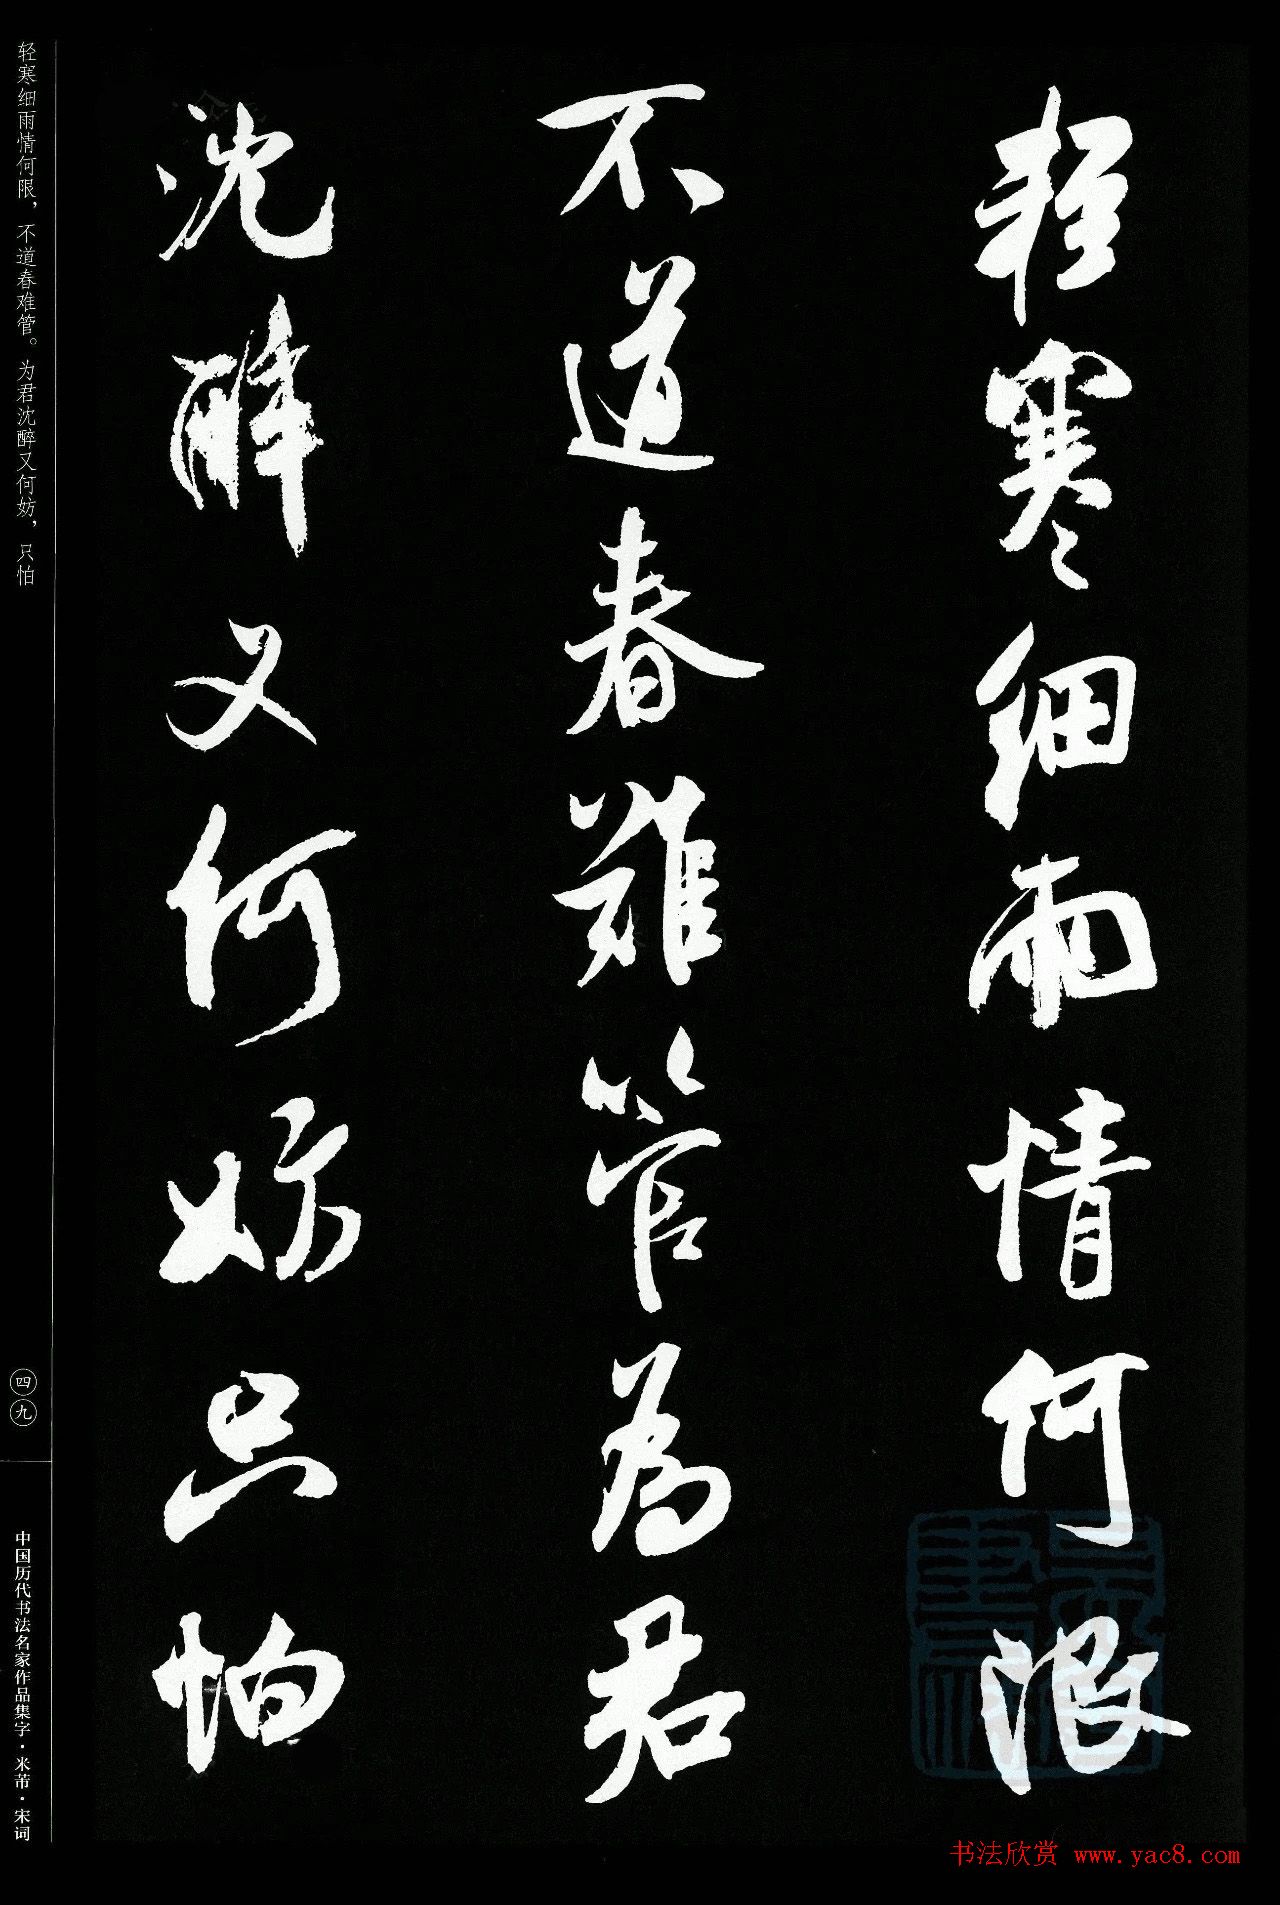 輕寒細雨情何限
不道春難管為君
沈醉又何妨只怕
轻寒细雨情何限，不道春难管。为君沈醉又何妨，只怕
四九
中国历代书法名家作品集字·米芾·宋词
书法欣赏 www.yac8.com